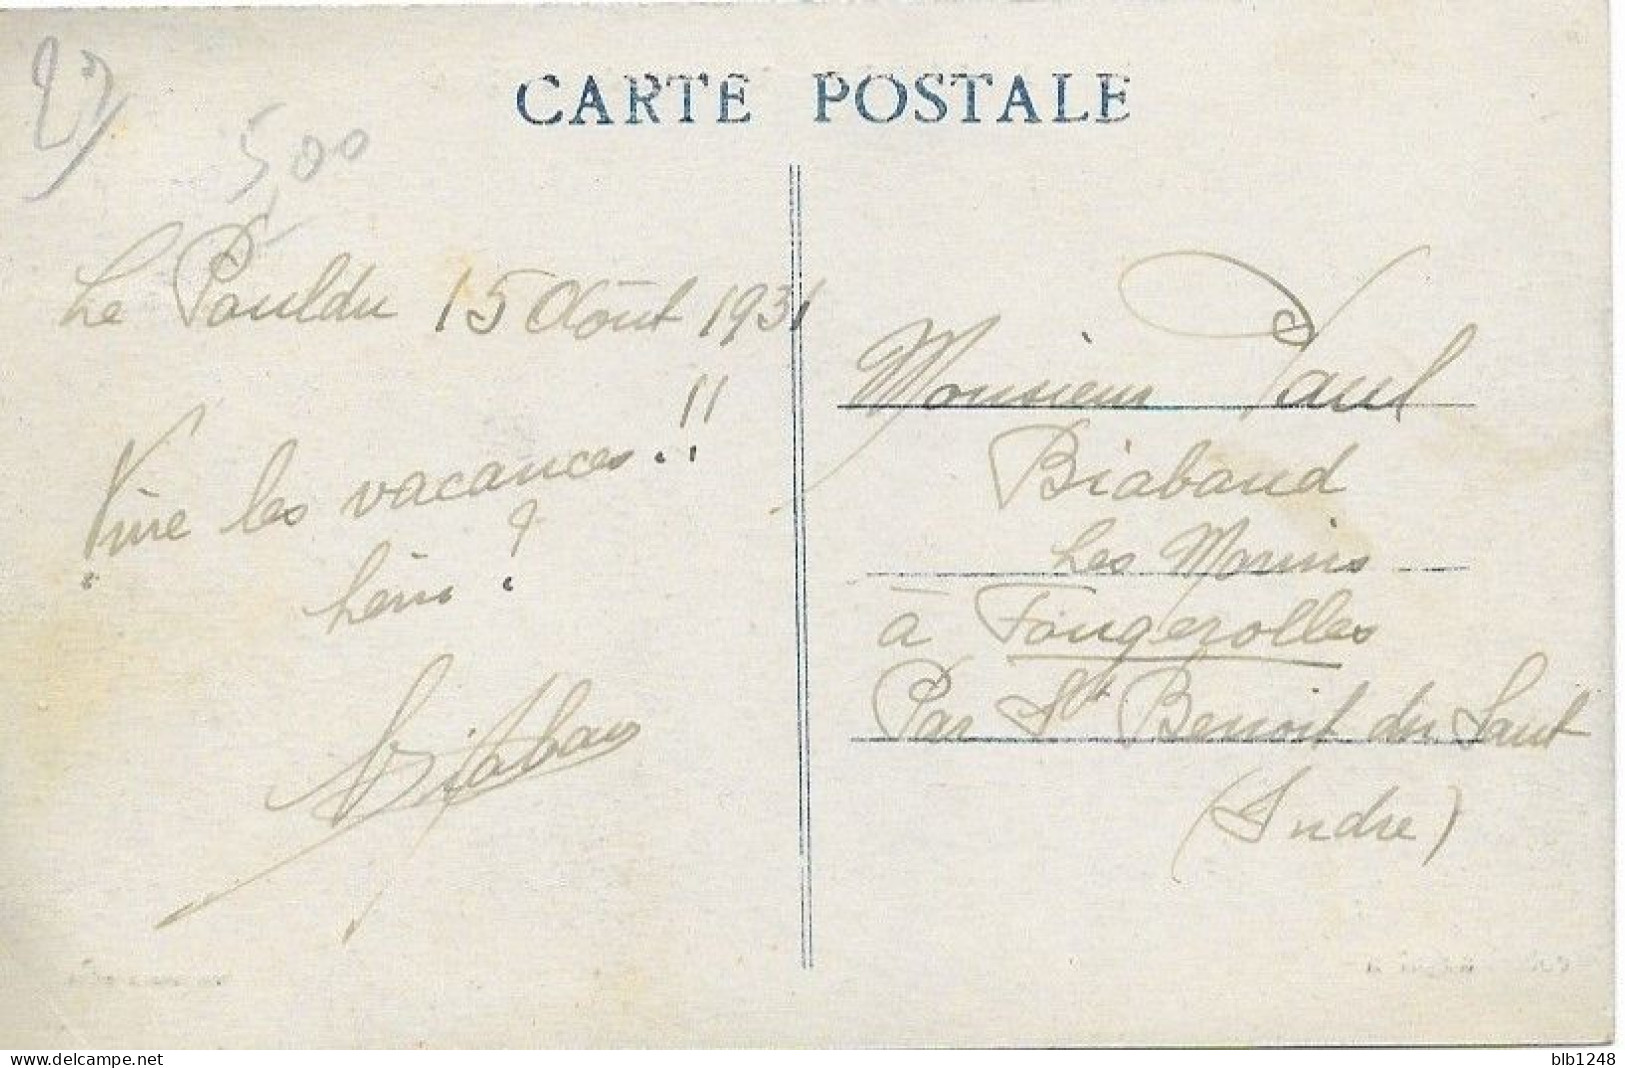 CARTE POSTALE
29
500
Le Pouldu 15 Août 1931
Vive les vacances..!!
hein ?
Monsieur Paul
Biabaud
Les Morins
à Fougerolles
Par St Benoit du Saut
(Indre)
www.delcampe.net
blb1248